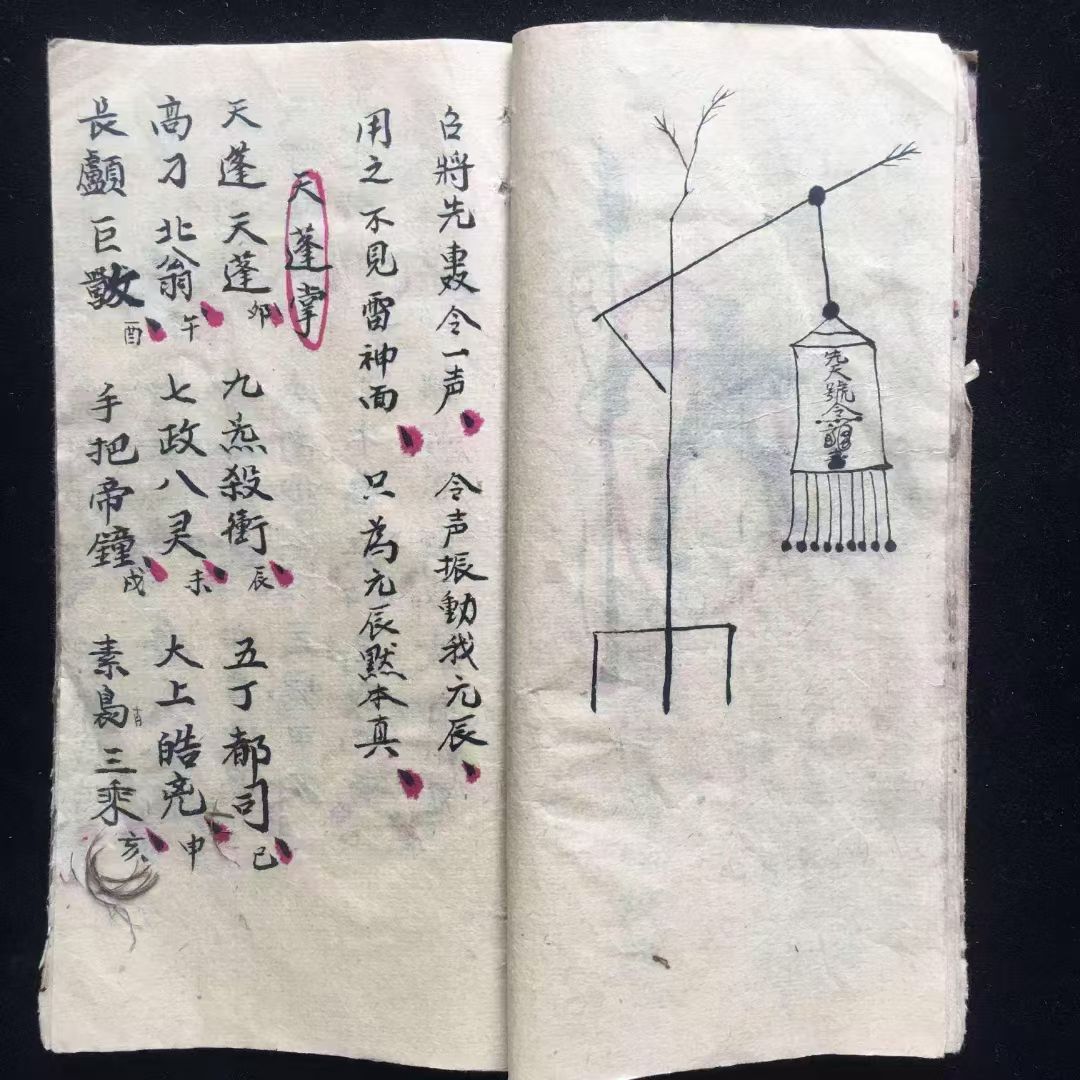 號
召將先轰令一声 令声振動我元辰
用之不見雷神面 只為元辰默本真
天蓬掌
天蓬天蓬 卯 九炁殺衝 辰 五丁都司 巳
高刁北翁 午 七政八灵 未 大上皓亮 申
長顱巨獸 酉 手把帝鐘 戌 素梟三乘 亥